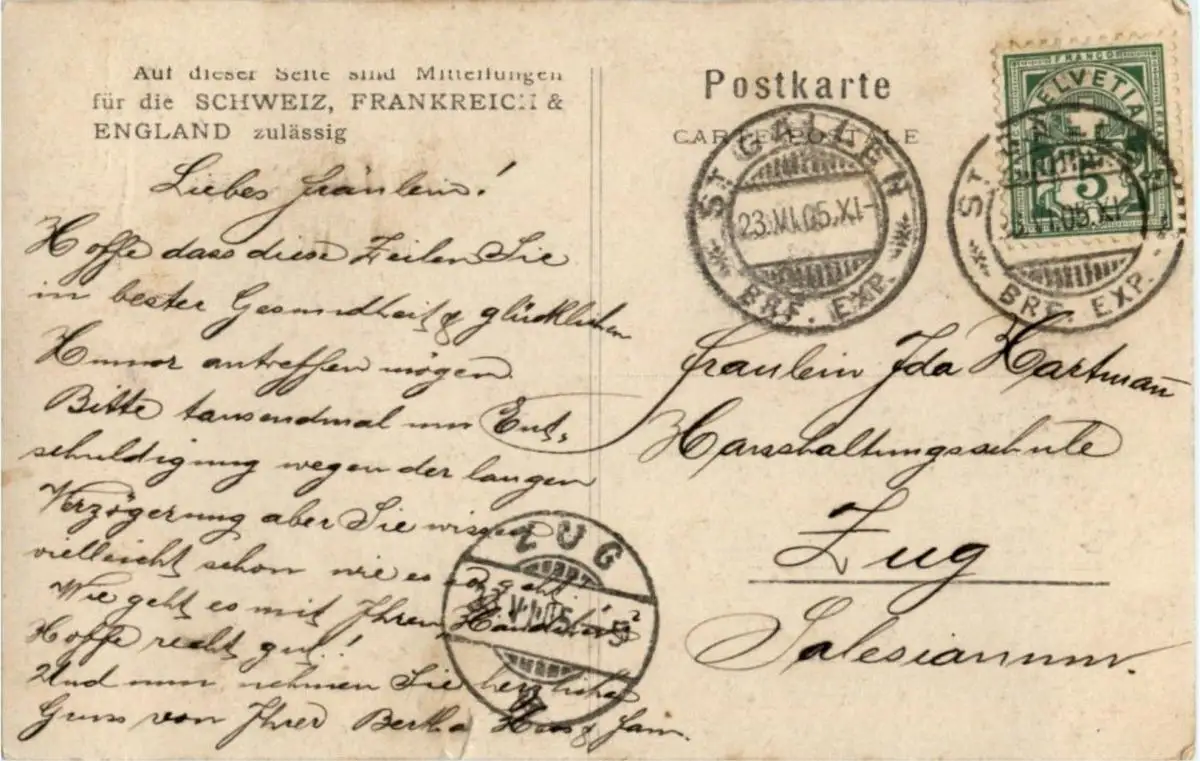 Auf dieser Seite sind Mitteilungen
für die SCHWEIZ, FRANKREICH &
ENGLAND zulässig
Postkarte
CARTE POSTALE
FRANCO
HELVETIA
5
ST. GALLEN
23.VI.05.XI-
BRF. EXP.
ST. GALLEN
23.VI.05.XI-
BRF. EXP.
Liebes Fräulein!
Hoffe dass diese Zeilen Sie
in bester Gesundheit & glücklichem
Humor antreffen mögen.
Bitte tausendmal um Ent-
schuldigung wegen der langen
Verzögerung aber Sie wissen
vielleicht schon wie es so geht!
Wie geht es mit Ihren
Hoffe recht gut!
Und nun nehmen Sie herzliche
Gruss von Ihrer Bertha & Fam.
ZUG
VI.05
Fräulein Ida Hartmañ
Haushaltungsschule
Zug
Salesianum.